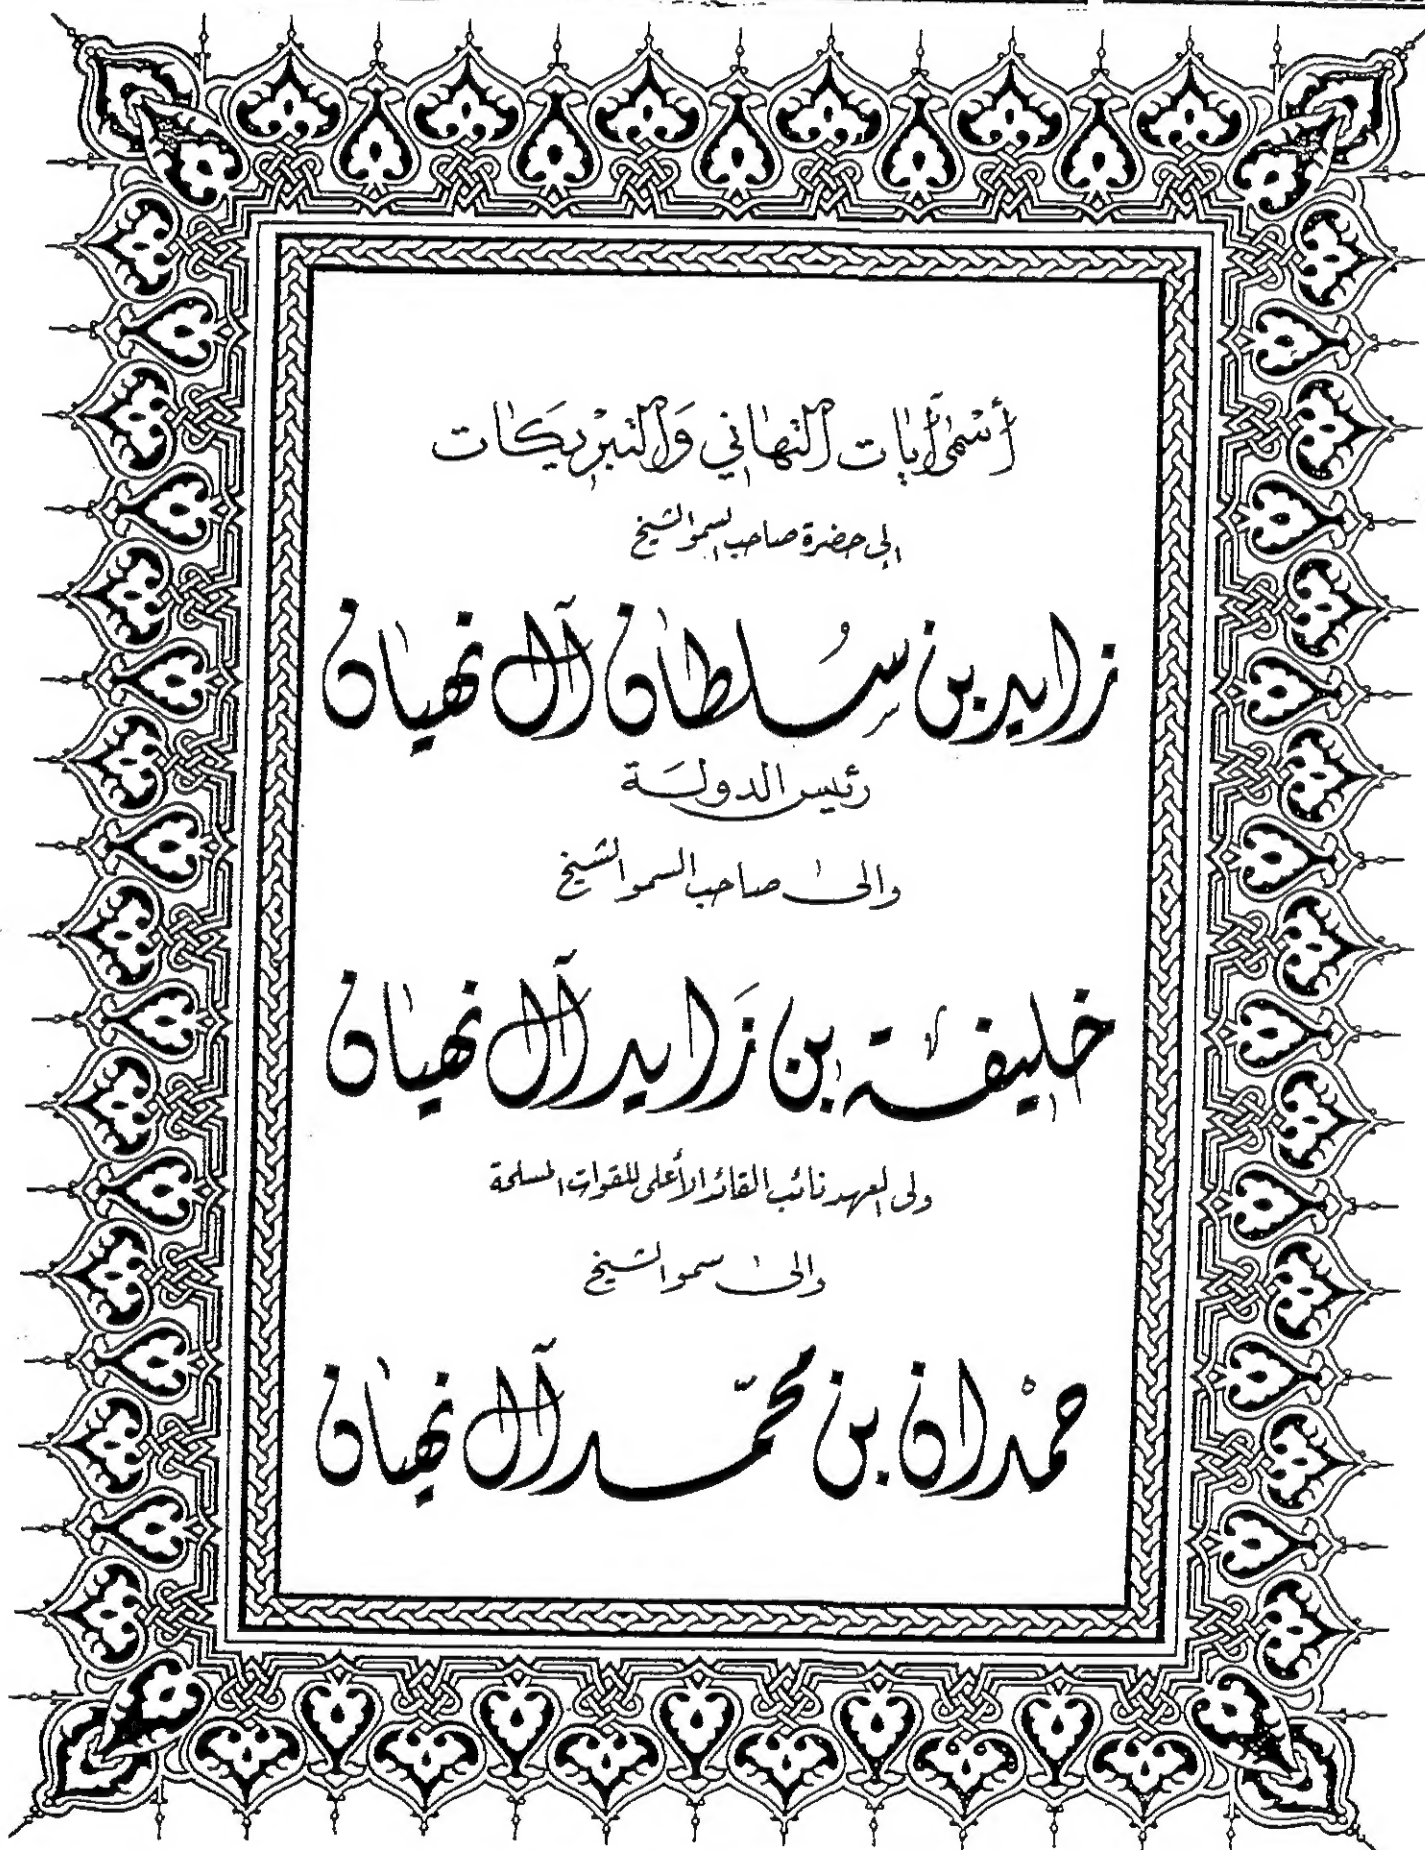 أسمى آيات التهاني والتبريكات
إلى حضرة صاحب السمو الشيخ
زايد بن سلطان آل نهيان
رئيس الدولة
والى صاحب السمو الشيخ
خليفة بن زايد آل نهيان
ولى العهد نائب القائد الأعلى للقوات المسلحة
والى سمو الشيخ
حمدان بن محمد آل نهيان